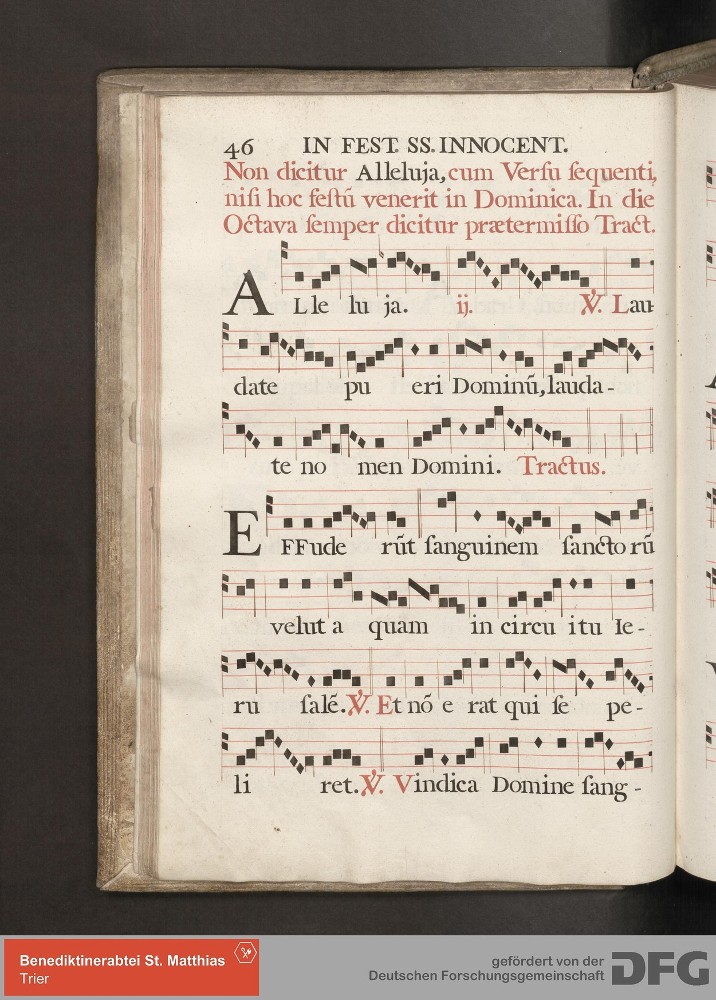 46 IN FEST. SS. INNOCENT.
Non dicitur Alleluja, cum Verſu ſequenti,
niſi hoc feſtū venerit in Dominica. In die
Octava ſemper dicitur prætermiſſo Tract.
A Lle lu ja. ij. ℣. Lau
date pu eri Dominū, lauda-
te no men Domini. Tractus.
E FFude rūt ſanguinem ſancto rū
velut a quam in circu itu Ie-
ru ſalē. ℣. Et nō e rat qui ſe pe-
li ret. ℣. Vindica Domine ſang-
Benediktinerabtei St. Matthias
Trier
gefördert von der
Deutschen Forschungsgemeinschaft DFG